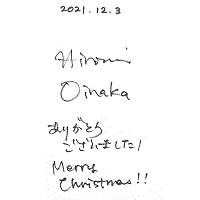 2021.12.3
Hiromi
Oinaka
ありがとう
ございました!
Merry
Christmas!!